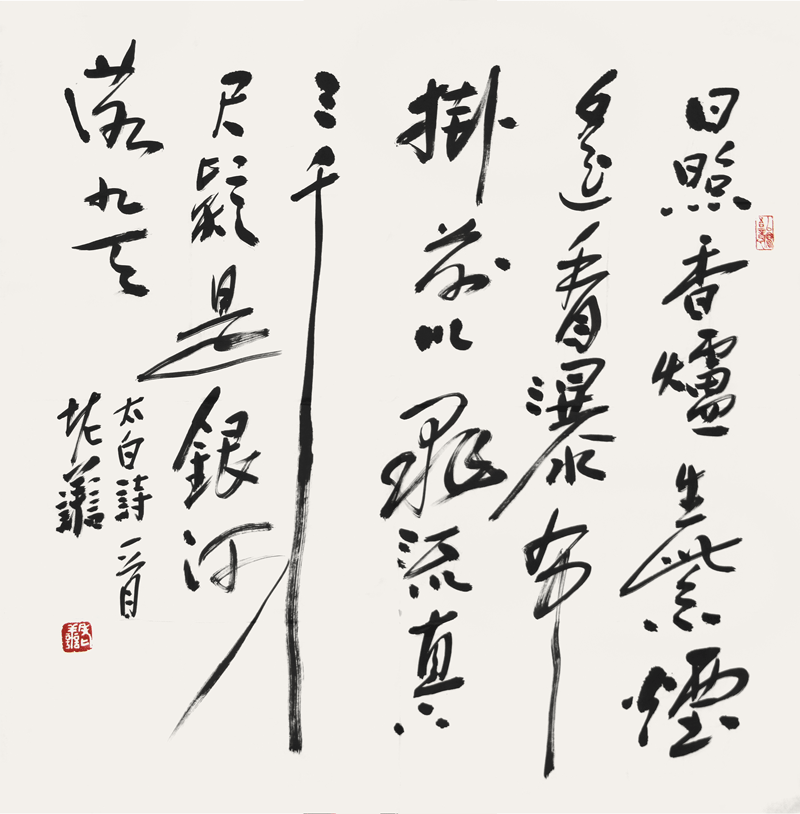 日照香爐生紫煙
遙看瀑布
掛前川飛流直下
三千
尺疑是銀河
落九天
太白詩一首